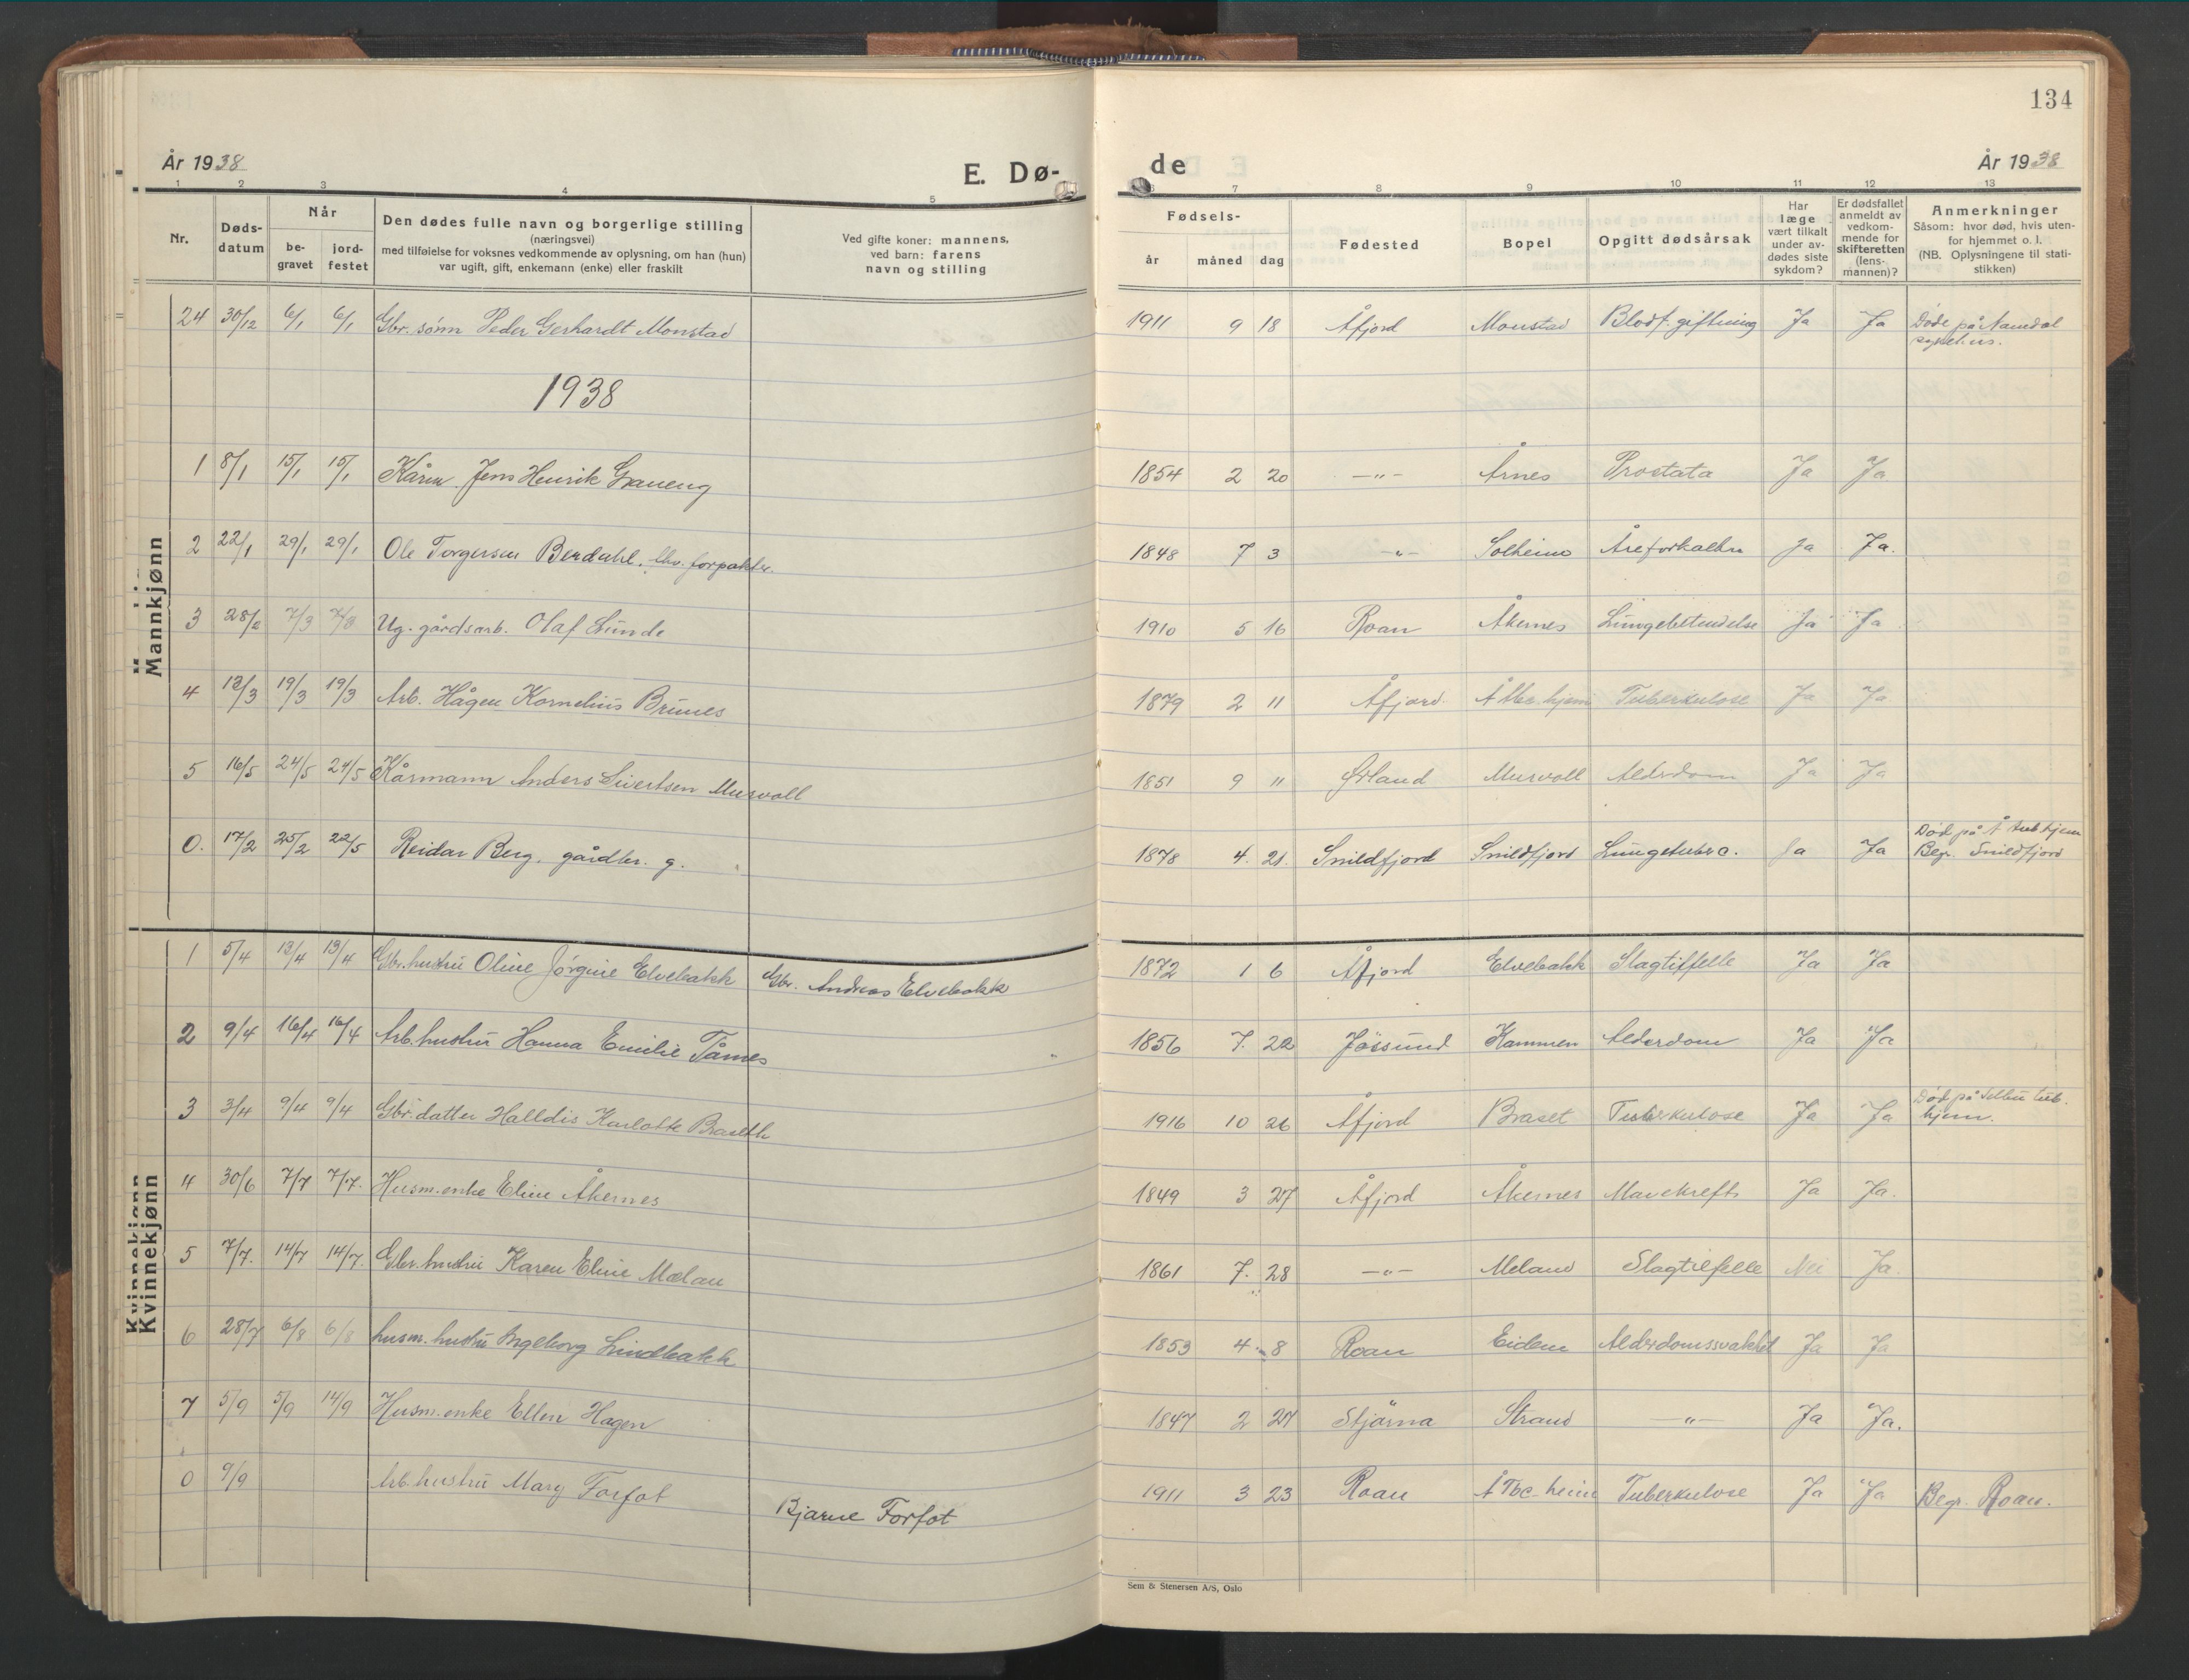 134
År 1938
E. Dø-
de
År 1938
1 2 3 4 5 6 7 8 9 10 11 12 13
Nr.
Døds-
datum
Når
be-
gravet
jord-
festet
Den dødes fulle navn og borgerlige stilling
(næringsvei)
med tilføielse for voksnes vedkommende av oplysning, om han (hun)
var ugift, gift, enkemann (enke) eller fraskilt
Ved gifte koner: mannens,
ved barn: farens
navn og stilling
Fødsels-
år måned dag
Fødested
Bopel
Opgitt dødsårsak
Har
læge
vært tilkalt
under av-
dødes siste
sykdom?
Er dødsfallet
anmeldt av
vedkom-
mende for
skifteretten
(lens-
mannen)?
Anmerkninger
Såsom: hvor død, hvis uten-
for hjemmet o. l.
(NB. Oplysningene til stati-
stikken)
Mannkjønn
24 30/12 6/1 6/1 Gbr. sønn Peder Gerhardt Monstad 1911 9 18 Åfjord Monstad Blodf.giftning Ja Ja Døde på Namdal
sykehus.
1938
1 8/1 15/1 15/1 Kårm. Jens Henrik Graneng 1854 2 20 —"— Årnes Prostata Ja Ja
2 22/1 29/1 29/1 Ole Torgersen Berdahl. forpakter. 1848 7 3 —"— Solheim Åreforkalkn Ja Ja.
3 28/2 7/3 7/3 Ug. gårdsarb. Olaf Lunde 1910 5 16 Roan Åkernes Lungebetendelse Ja Ja
4 12/3 19/3 19/3 Arb. Hågen Kornelius Brunes 1879 2 11 Åfjord Å Tbc. hjem Tuberkulose Ja Ja
5 16/5 24/5 24/5 Kårmann Anders Sivertsen Murvoll 1851 9 11 Ørland Murvoll Alderdom Ja Ja
0. 17/2 25/2 22/5 Reidar Berg. gårdbr. g. 1878 4. 21. Snildfjord Snildfjord Lungetuberc. Ja Ja Død på Å tub hjem
Begr. Snildfjord
Kvinnekjønn
1 5/4 13/4 13/4 Gbr. hustru Oline Jørgine Elvebakk Gbr. Andreas Elvebakk 1872 1 6 Åfjord Elvebakk Slagtilfelle Ja Ja
2 9/4 16/4 16/4 Arb. hustru Hanna Emilie Tårnes 1856 7. 22 Jøssund Kammen Alderdom Ja Ja
3 3/4 9/4 9/4 Gbr. datter Halldis Karlotte Braseth 1916 10 26 Åfjord Braset Tuberkulose Ja Ja Død på Selbu tub.
hjem.
4 30/6 7/7 7/7. Husm. enke Eline Åkernes 1849 3 27 Åfjord Åkernes Mavekreft Ja Ja.
5 7/7. 14/7 14/7. Gbr. hustru Karen Eline Mælan 1861 7. 28 —"— Meland Slagtilfelle Nei Ja.
6 28/7 6/8 6/8 husm. hustru Ingeborg Lindbakk 1853 4 8 Roan Eidem Alderdomssvakhet Ja Ja
7 5/9 5/9 14/9 Husm. enke Ellen Hagen 1847 2 27 Stjørna Strand —"— Ja Ja.
0 9/9 Arb. hustru Mary Forfot Bjarne Forfot 1911 3 23 Roan Å Tbc. heim Tuberkulose Ja Ja Begr. Roan.
Sem & Stenersen A/S, Oslo